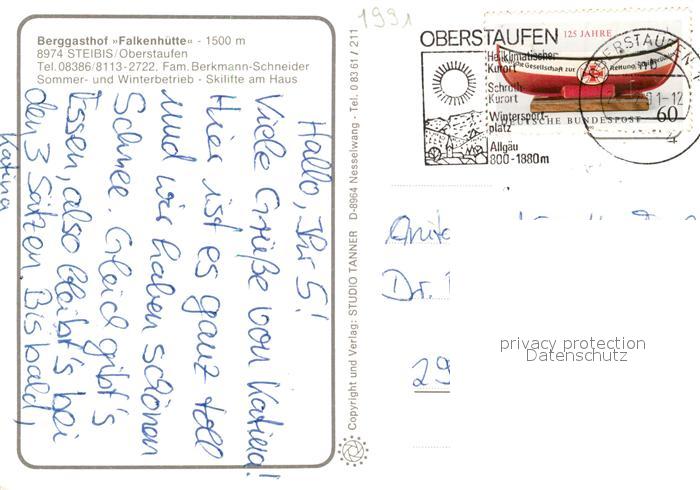 1991
Berggasthof »Falkenhütte« - 1500 m
8974 STEIBIS/Oberstaufen
Tel.08386/8113-2722, Fam.Berkmann-Schneider
Sommer- und Winterbetrieb - Skilifte am Haus
Hallo, Ihr 5!
Viele Grüße von Katina!
Hier ist es ganz toll
und wir haben schönen
Schnee. Gleich gibt's
Essen, also bleibt's bei
den 3 Sätzen. Bis bald,
Katina
Copyright und Verlag: STUDIO TANNER D-8964 Nesselwang - Tel. 0 83 61 / 211
OBERSTAUFEN
Heilklimatischer
Kurort
Schroth-
Kurort
Wintersport-
platz
Allgäu
800-1880m
125 JAHRE
Deutsche Gesellschaft zur Rettung Schiffbrüchiger
DEUTSCHE BUNDESPOST
60
OBERSTAUFEN
1-12
4
Dr.
29
privacy protection
Datenschutz